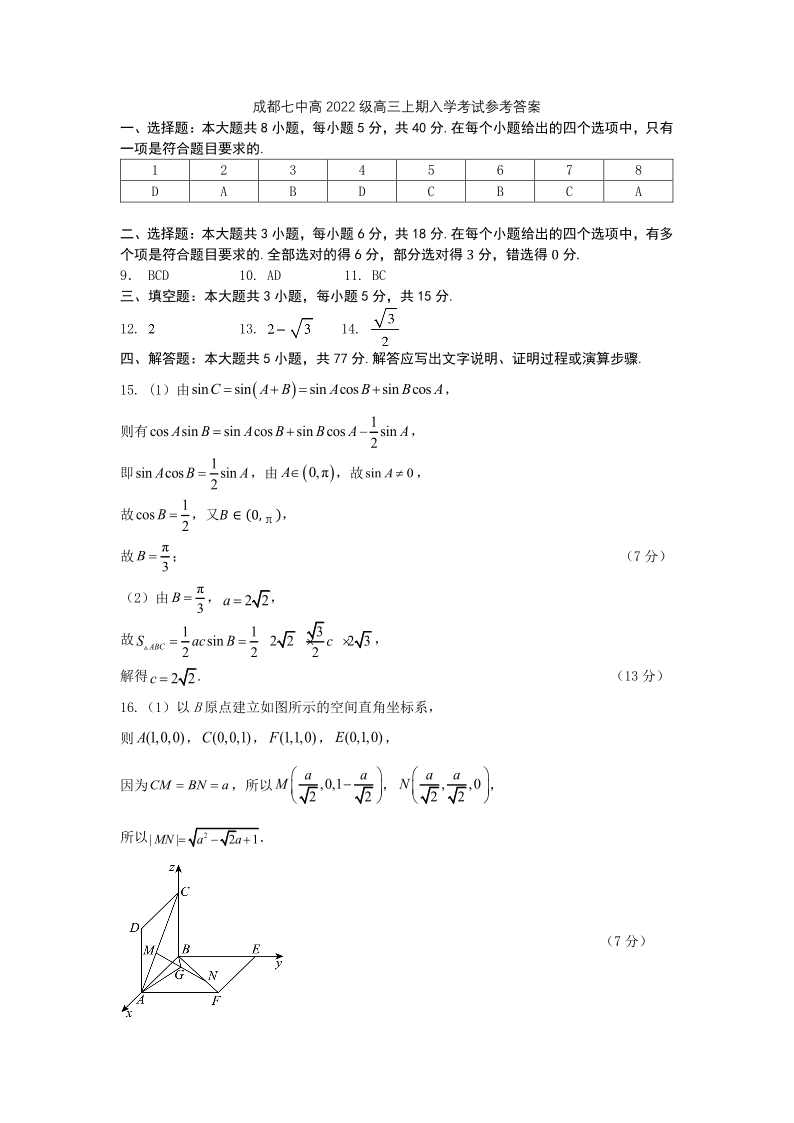 成都七中高 2022 级高三上期入学考试参考答案
一、选择题：本大题共 8 小题，每小题 5 分，共 40 分.在每个小题给出的四个选项中，只有
一项是符合题目要求的.
1 2 3 4 5 6 7 8
D A B D C B C A
二、选择题：本大题共 3 小题，每小题 6 分，共 18 分.在每个小题给出的四个选项中，有多
个项是符合题目要求的.全部选对的得 6 分，部分选对得 3 分，错选得 0 分.
9. BCD 10. AD 11. BC
三、填空题：本大题共 3 小题，每小题 5 分，共 15 分.
12. 2 13. 2−√3 14. √3/2
四、解答题：本大题共 5 小题，共 77 分.解答应写出文字说明、证明过程或演算步骤.
15. (1) 由 sin C = sin(A+B) = sin A cos B + sin B cos A，
则有 cos A sin B = sin A cos B + sin B cos A − 1/2 sin A，
即 sin A cos B = 1/2 sin A，由 A∈(0,π)，故 sin A ≠ 0，
故 cos B = 1/2，又B ∈ (0,π)，
故 B = π/3； （7 分）
（2）由 B = π/3，a = 2√2，
故 S△ABC = 1/2 ac sin B = 1/2 2√2 × √3/2 c ×2√3，
解得 c = 2√2. （13 分）
16.（1）以 B 原点建立如图所示的空间直角坐标系，
则 A(1,0,0)，C(0,0,1)，F(1,1,0)，E(0,1,0)，
因为 CM = BN = a，所以 M(a/√2,0,1−a/√2)，N(a/√2,a/√2,0)，
所以 |MN|=√(a²−√2a+1).
z
C
D
M
B
E
y
G
N
A
F
x
（7 分）